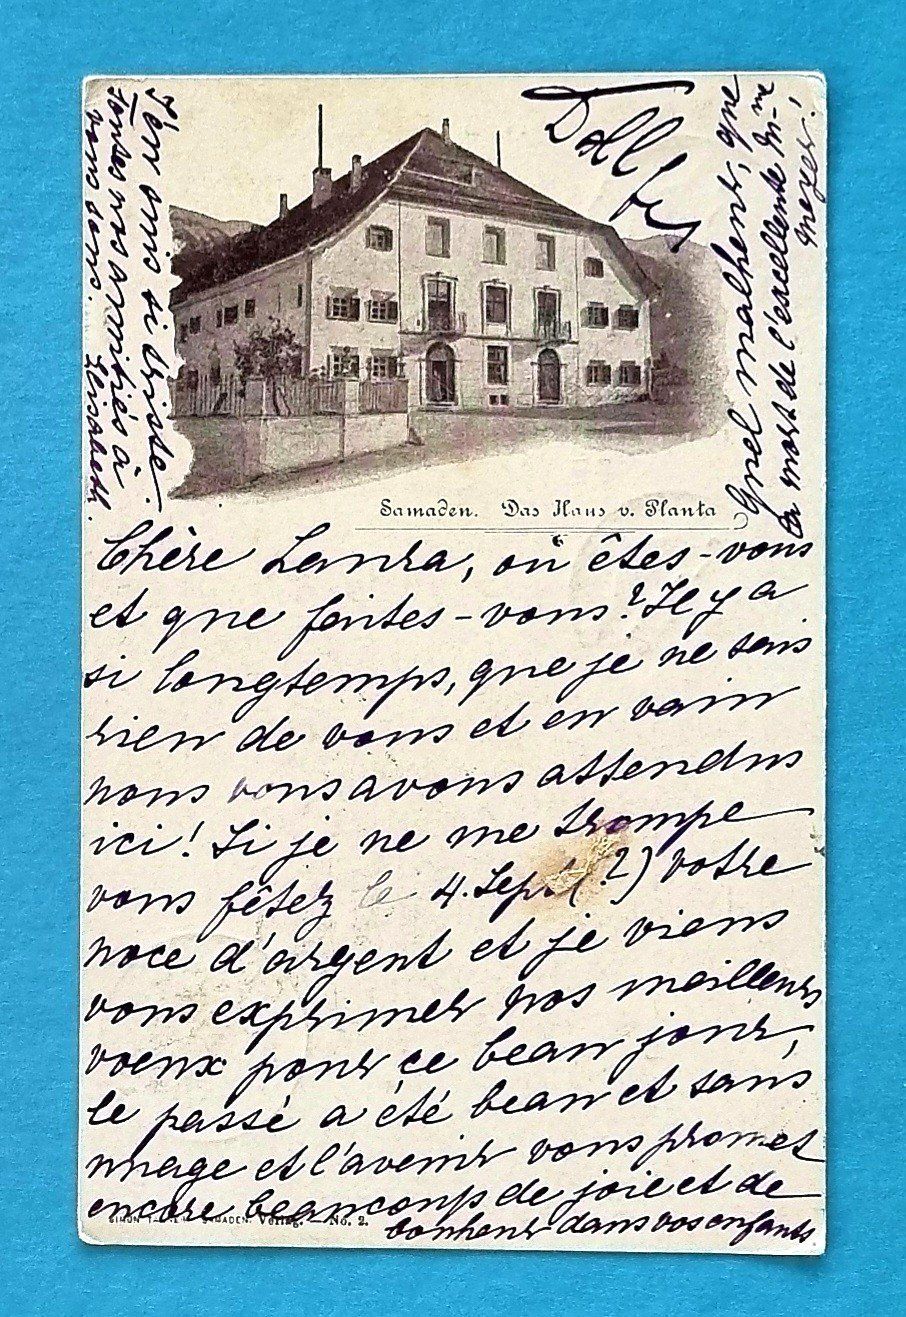 Samaden. Das Haus v. Planta
Chère Laura, où êtes-vous
et que faites-vous? Il y a
si longtemps, que je ne sais
rien de vous et en vain
nous vous avons attendus
ici! Si je ne me trompe
vous fêtez le 4. Sept (?) votre
noce d'argent et je viens
vous exprimer nos meilleurs
voeux pour ce beau jour,
le passé a été beau et sans
nuage et l'avenir vous promet
encore beaucoup de joie et de
bonheur dans vos enfants.
Quel malheur, que
la mort de l'excellente Mme
J'en suis si triste.
Toutes nos amitiés à
vous deux.
Elisabeth.
SAMADEN. Verlag. — No. 2.